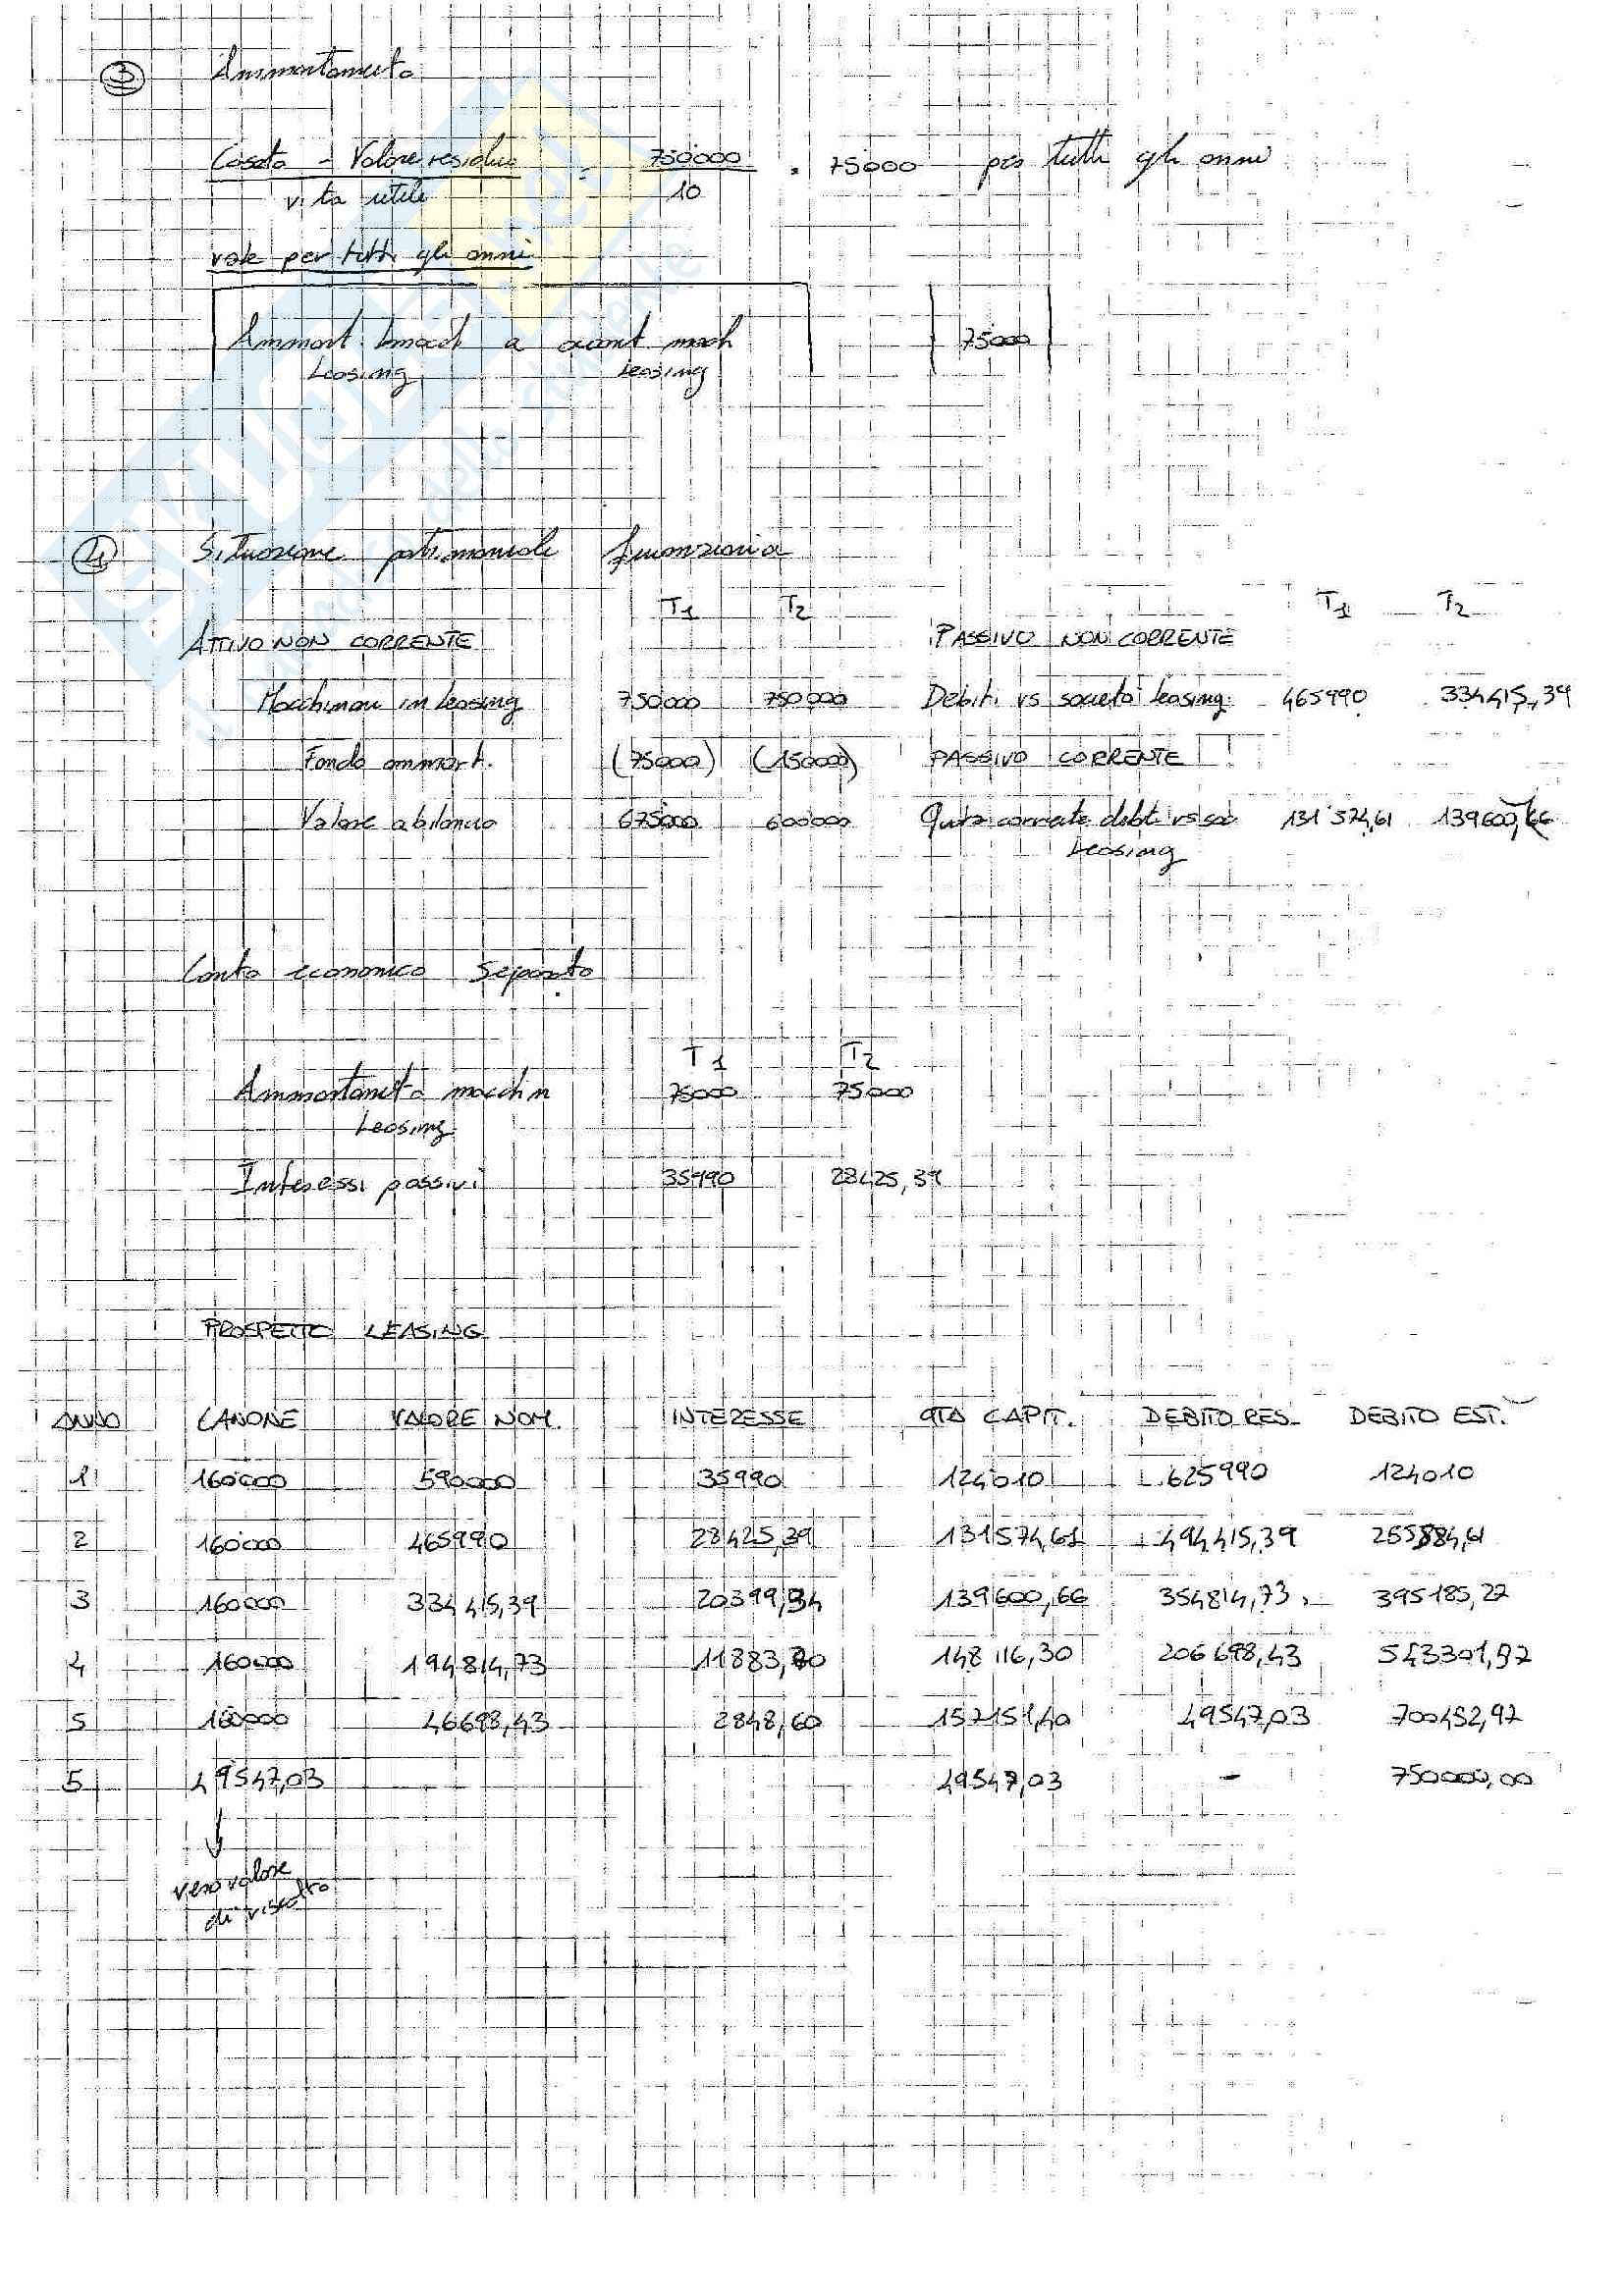 3 Ammortamento
Costo - Valore residuo = 750000 = 75000 per tutti gli anni
vita utile 10
vale per tutti gli anni
Ammort macch a a mach 75000
Leasing Leasing
4 Situazione patrimoniale finanziaria
T1 T2 T1 T2
ATTIVO NON CORRENTE PASSIVO NON CORRENTE
Macchinari in leasing 750000 750000 Debiti vs società leasing 465990 334415,39
Fondo ammort. (75000) (150000) PASSIVO CORRENTE
Valore a bilancio 675000 600000 Quota corrente debiti vs soc 131574,61 139600,66
Leasing
Conto economico separato
T1 T2
Ammortamento macchin 75000 75000
Leasing
Interessi passivi 35990 28425,39
PROSPETTO LEASING
ANNO CANONE VALORE NOM. INTERESSE QTA CAPIT. DEBITO RES. DEBITO EST.
1 160000 590000 35990 124010 625990 124010
2 160000 465990 28425,39 131574,61 494415,39 255584,61
3 160000 334415,39 20399,34 139600,66 354814,73 395185,27
4 160000 194814,73 11883,70 148116,30 206698,43 543301,57
5 160000 46698,43 2848,60 157151,40 49547,03 700452,97
5 49547,03 49547,03 - 750000,00
vero valore
di riscatto